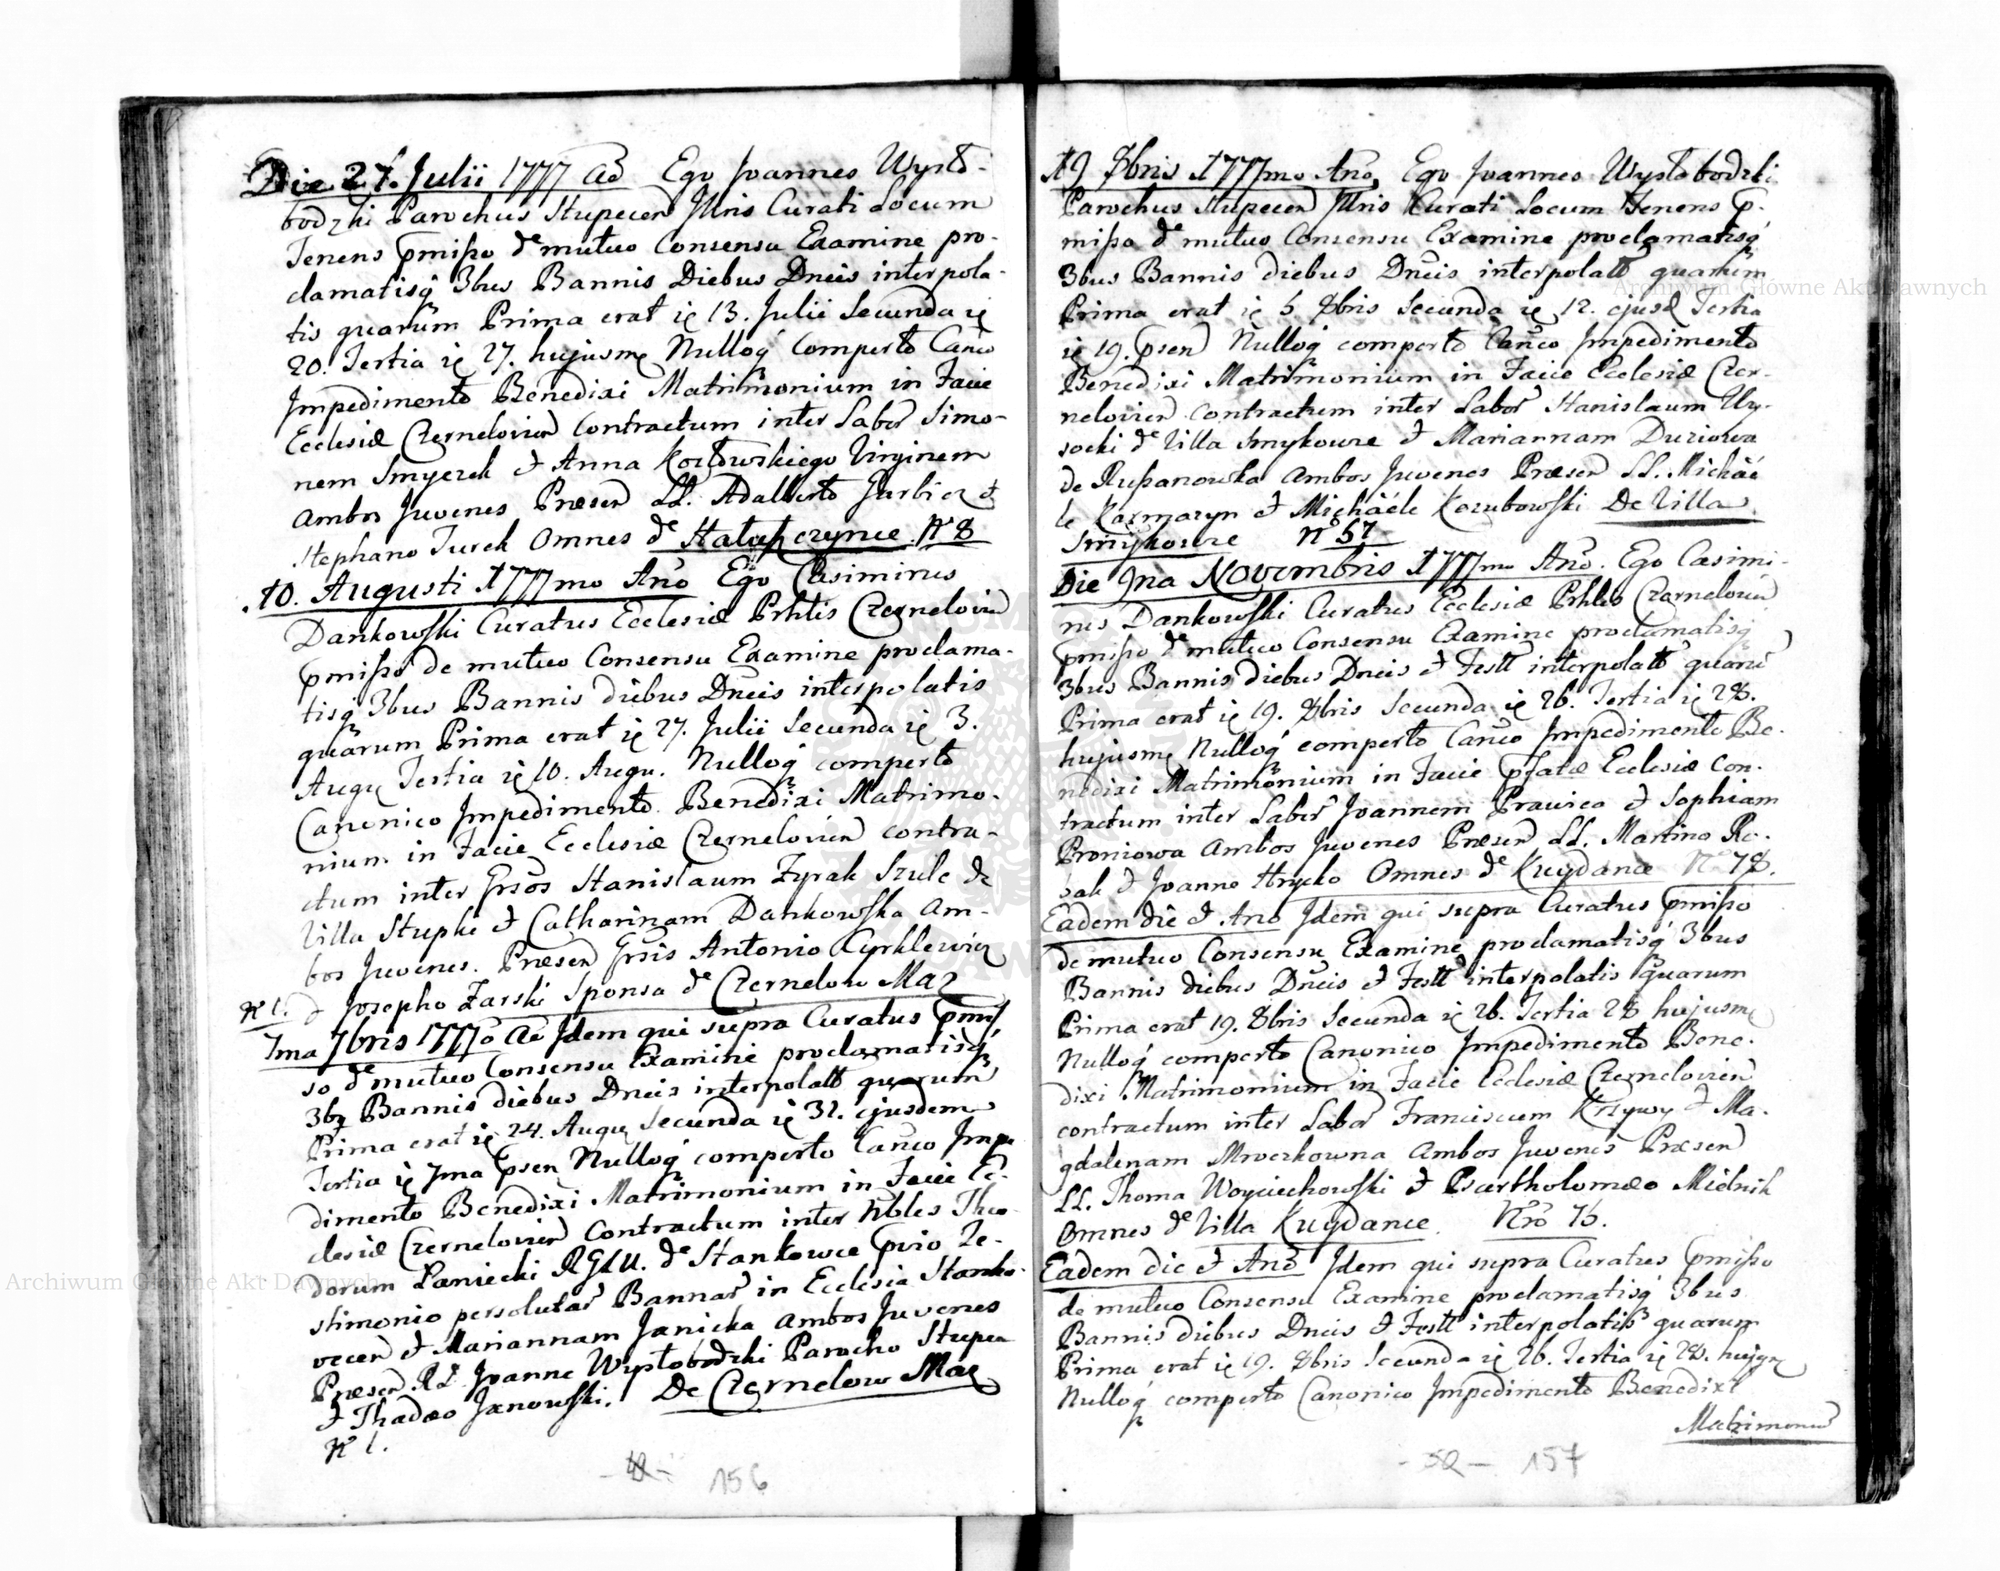 Die 27. Julii 1777 Ao Ego Joannes Wysło-
bodzki Parochus Stupecen Illris Curati Locum
Tenens pmisso de mutuo Consensu Examine pro-
clamatisq 3bus Bannis Diebus Dncis interpola-
tis quarum Prima erat ie 13. Julii Secunda ie
20. Tertia ie 27. hujusme Nulloq comperto Canco
Impedimento Benedixi Matrimonium in Facie
Ecclesiæ Czernelovien Contractum inter Labor Simo-
nem Smyczek et Anna Kozłowskiego Virginem
Ambos Juvenes Præsen LL. Adalberto Jurbicz et
Stephano Turek Omnes de Hałuszczynce. N 8
10. Augusti 1777mo Ano Ego Casimirus
Dankowski Curatus Ecclesiæ Prhlis Czernelovien
pmisso de mutuo Consensu Examine proclama-
tisq 3bus Bannis diebus Dncis interpolatis
quarum Prima erat ie 27. Julii Secunda ie 3.
Augu Tertia ie 10. Augu. Nulloq comperto
Canonico Impedimento. Benedixi Matrimo-
nium in Facie Ecclesiæ Czernelovien contra-
ctum inter Grsos Stanislaum Zyrak Szulc de
Villa Stupki et Catharinam Dankowska Am-
bos Juvenes. Præsen Grsis Antonio Cyrklewicz
N 1. et Josepho Zarski Sponsa de Czernelow Maz
7ma 7bris 1777o Ao Idem qui supra Curatus pmis
so de mutuo Consensu Examine proclamatisq
3bz Bannis diebus Dncis interpolatt quarum
Prima erat ie 24. Augu Secunda ie 31. ejusdem
Tertia ie 7ma psen Nulloq comperto Canco Impe
dimento Benedixi Matrimonium in Facie Ec-
clesiæ Czernelovien Contractum inter Nbles Theo-
dorum Paniecki RGLU. de Stankowce pvio Te-
stimonio persolutar Bannar in Ecclesia Stanko-
vecen et Mariannam Janicka ambos Juvenes
Præsen. RL Joanne Wysłobodzki Parocho Stupen
et Thadæo Janowski. De Czernelow Maz
N 1.
156
19 8bris 1777mo Ano Ego Joannes Wysłobodzki
Parochus Stupecen Illris Curati Locum Tenens p-
misso de mutuo Consensu Examine proclamatisq
3bus Bannis diebus Dncis interpolatt quarum
Prima erat ie 5 8bris Secunda ie 12. ejusd Tertia
ie 19. psen Nulloq comperto Canco Impedimento
Benedixi Matrimonium in Facie Ecclesiæ Czer-
nelovien Contractum inter Labor Stanislaum Wy-
socki de Villa Smykowce et Mariannam Duziowa
de Rusanowka Ambos Juvenes Præsen LL. Michae
le Kaczmaryn et Michaele Kozubowski De Villa
Smykowce No 57
Die 1na Novembris 1777mo Ano. Ego Casimi-
rus Dankowski Curatus Ecclesiæ Prhlis Czernelovien
pmisso de mutuo Consensu Examine proclamatisq
3bus Bannis diebus Dncis et Festt interpolatt quaru
Prima erat ie 19. 8bris Secunda ie 26. Tertia ie 28.
hujusme Nulloq comperto Canco Impedimento Be-
nedixi Matrimonium in Facie pfatæ Ecclesiæ Con-
tractum inter Labor Joannem Prawica et Sophiam
Proniowa Ambos Juvenes Præsen LL. Martino Ro-
bak et Joanne Hrycko Omnes de Kuydance N 78.
Eadem die et Ano Idem qui supra Curatus pmisso
de mutuo Consensu Examine proclamatisq 3bus
Bannis diebus Dncis et Festt interpolatis quarum
Prima erat 19. 8bris Secunda ie 26. Tertia 28 hujusme
Nulloq comperto Canonico Impedimento Bene-
dixi Matrimonium in Facie Ecclesiæ Czernelovien
contractum inter Labor Franciscum Krzywy et Ma-
gdalenam Mroczkowna Ambos Juvenes Præsen
LL. Thoma Woyciechowski et Bartholomæo Mielnik
Omnes de Villa Kuydance. Nro 75.
Eadem die et Ano Idem qui supra Curatus pmisso
de mutuo Consensu Examine proclamatisq 3bus
Bannis diebus Dncis et Festt interpolatis quarum
Prima erat ie 19. 8bris Secunda ie 26. Tertia ie 28. hujqe
Nulloq comperto Canonico Impedimento Benedixi
Matrimoniu
- 50 - 157
Archiwum Główne Akt Dawnych
Archiwum Główne Akt Dawnych